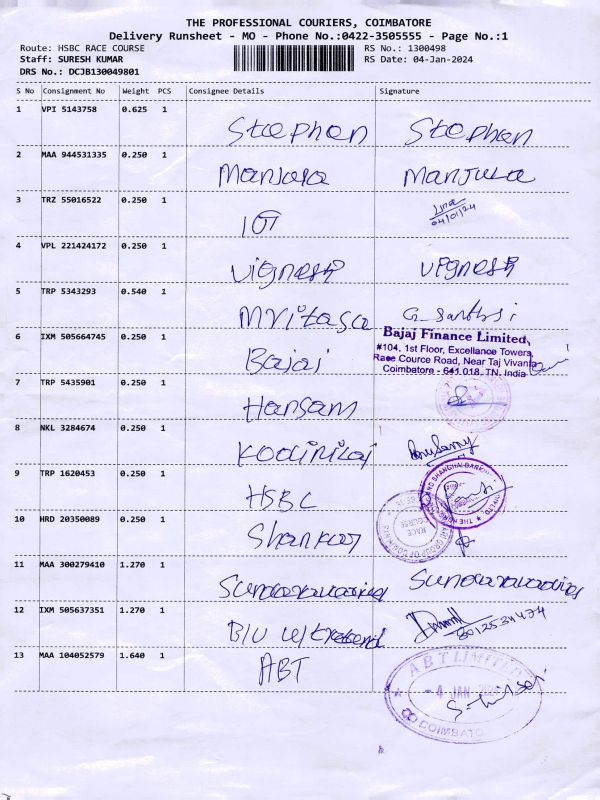 THE PROFESSIONAL COURIERS, COIMBATORE
Delivery Runsheet - MO - Phone No.:0422-3505555 - Page No.:1
Route: HSBC RACE COURSE RS No.: 1300498
Staff: SURESH KUMAR RS Date: 04-Jan-2024
DRS No.: DCJB130049801
S No Consignment No Weight PCS Consignee Details Signature
1 VPI 5143758 0.625 1
Stephen Stephen
2 MAA 944531335 0.250 1
Manjula Manjula
3 TRZ 55016522 0.250 1
04/01/24
4 VPL 221424172 0.250 1
Vignesh Vignesh
5 TRP 5343293 0.540 1
6 IXM 505664745 0.250 1
Bajaj
Bajaj Finance Limited,
#104, 1st Floor, Excellance Towers,
Race Cource Road, Near Taj Vivanta,
Coimbatore - 641 018. TN. India
7 TRP 5435901 0.250 1
Hansam
8 NKL 3284674 0.250 1
9 TRP 1620453 0.250 1
HSBC
10 HRD 20350089 0.250 1
RACE
COURSE
11 MAA 300279410 1.270 1
12 IXM 505637351 1.270 1
13 MAA 104052579 1.640 1
ABT
ABT LIMITED
- 4 JAN 2024
COIMBATO